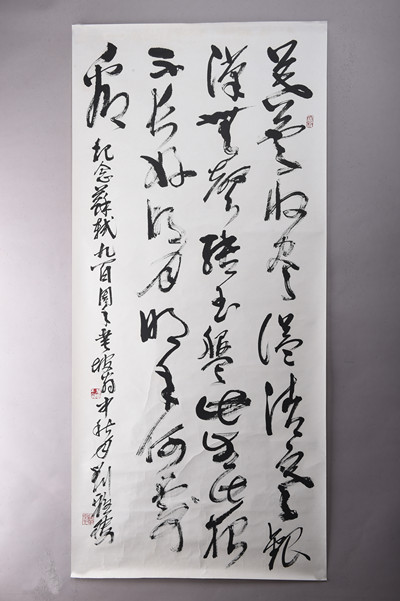 暮雲收盡溢清寒銀
漢無聲轉玉盤此生此夜
不長好明月明年何處
看
紀念蘇軾九百周年書坡翁中秋月劉